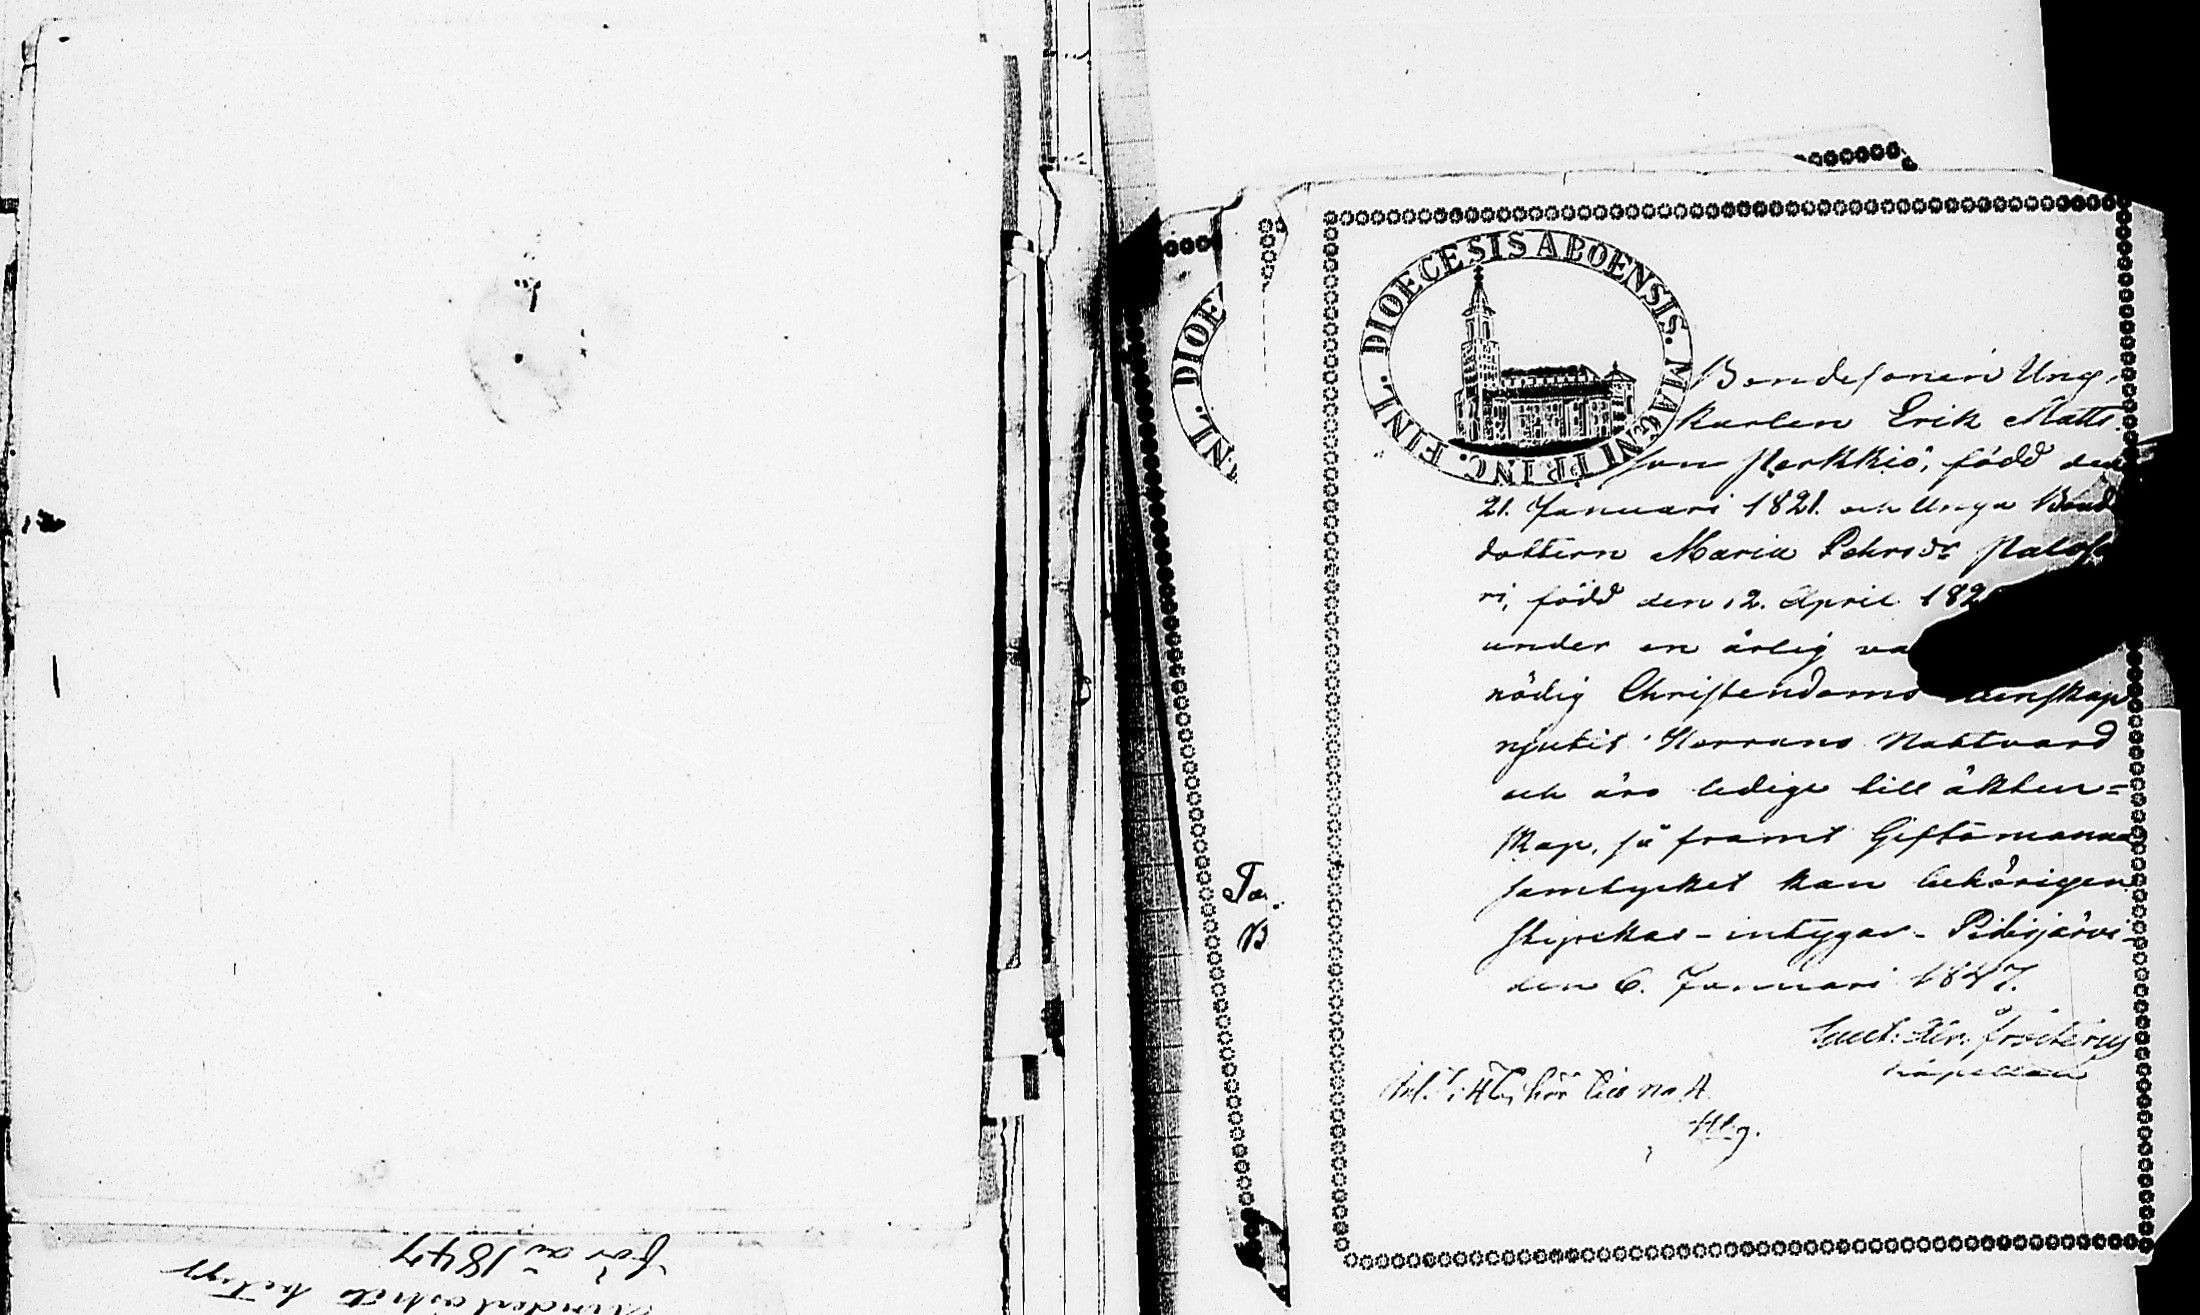 DIOECESIS ABOENSIS. MAGNI PRINC. FINL.
Bondesonen Ung-
karlen Erik Matts
son Perkkiö, född den
21. Januari 1821. och Unga Bond
dottern Maria Pehrsdr Palos
ri, född den 12. April 182
under en ärlig va
nödig Christendoms kunskap
njutit Herrans Nattvard
och äro ledige till äkten=
skap, så framt Giftomanna
samtycket kan behörigen
styrckas - intygar - Pidisjärvi
den 6. Januari 1847.
Kapellan
hör till No 4.
DIOE
NL.
B
för år 1847